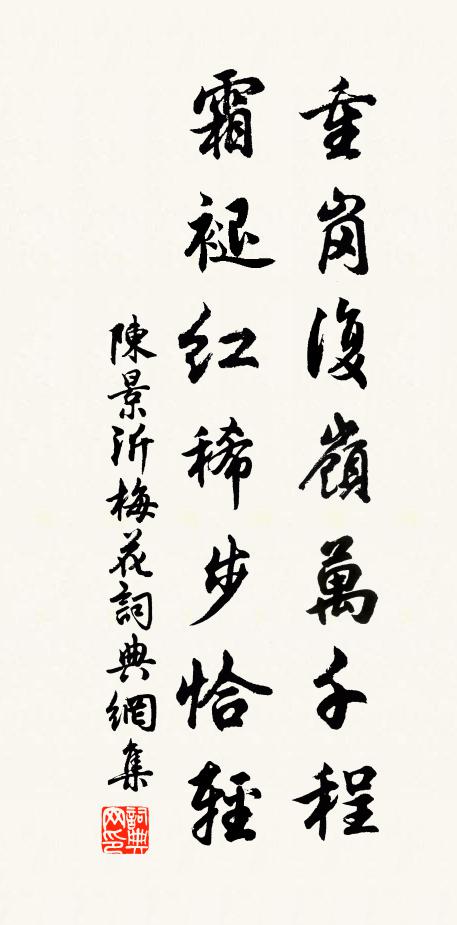 重崗復嶺萬千程
霜褪紅稀步恰輕
陳景沂梅花詞典網集
詞典网印